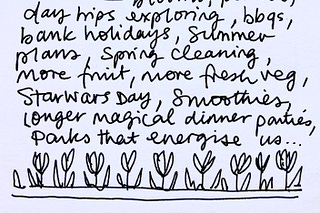 day trips exploring, bbqs,
bank holidays, Summer
plans, Spring cleaning,
more fruit, more fresh veg,
Star Wars Day, Smoothies,
longer magical dinner parties,
Parks that energise us...